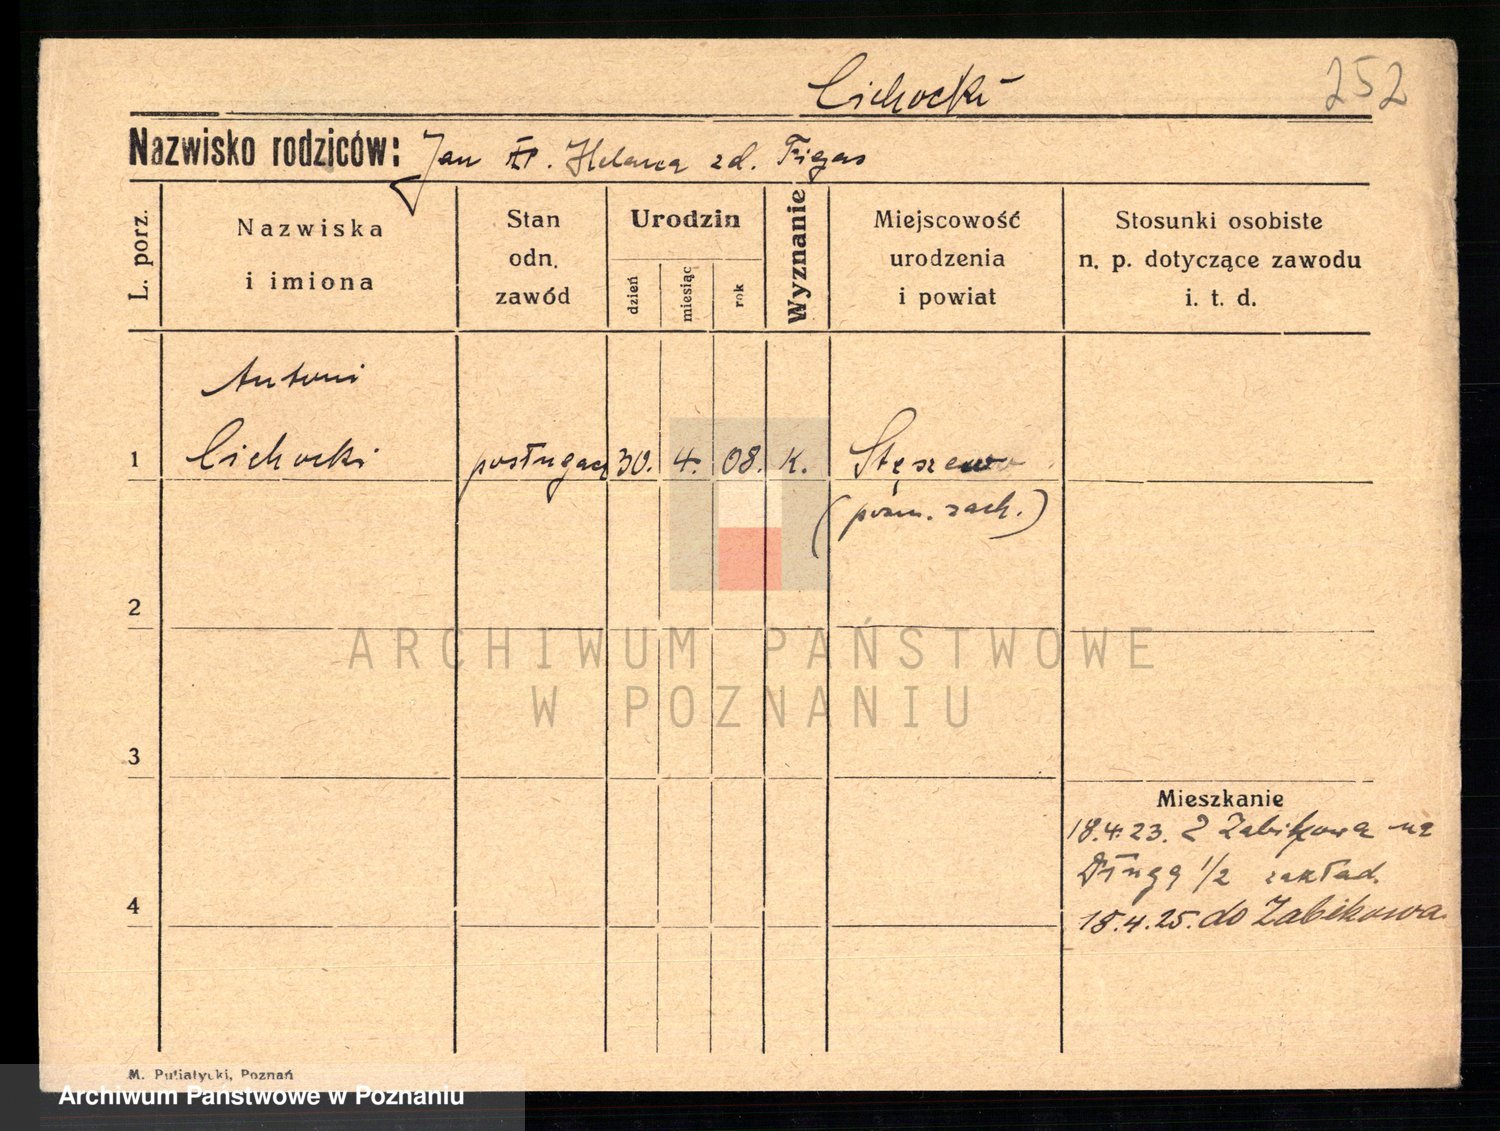 Cichocki
252
Nazwisko rodziców: Jan Helena zd. Figas
L. porz.
Nazwiska
i imiona
Stan
odn.
zawód
Urodzin
dzień
miesiąc
rok
Wyznanie
Miejscowość
urodzenia
i powiat
Stosunki osobiste
n. p. dotyczące zawodu
i. t. d.
Antoni
1 Cichocki posługacz 30. 4. 08. k. Stęszewo
(pozn. zach.)
2
3
Mieszkanie
18.4.23. Z Zabikowa na
Długą 1/2 zakład.
4
18.4.25. do Zabikowa.
M. Putiatycki, Poznań
ARCHIWUM PAŃSTWOWE
W POZNANIU
Archiwum Państwowe w Poznaniu